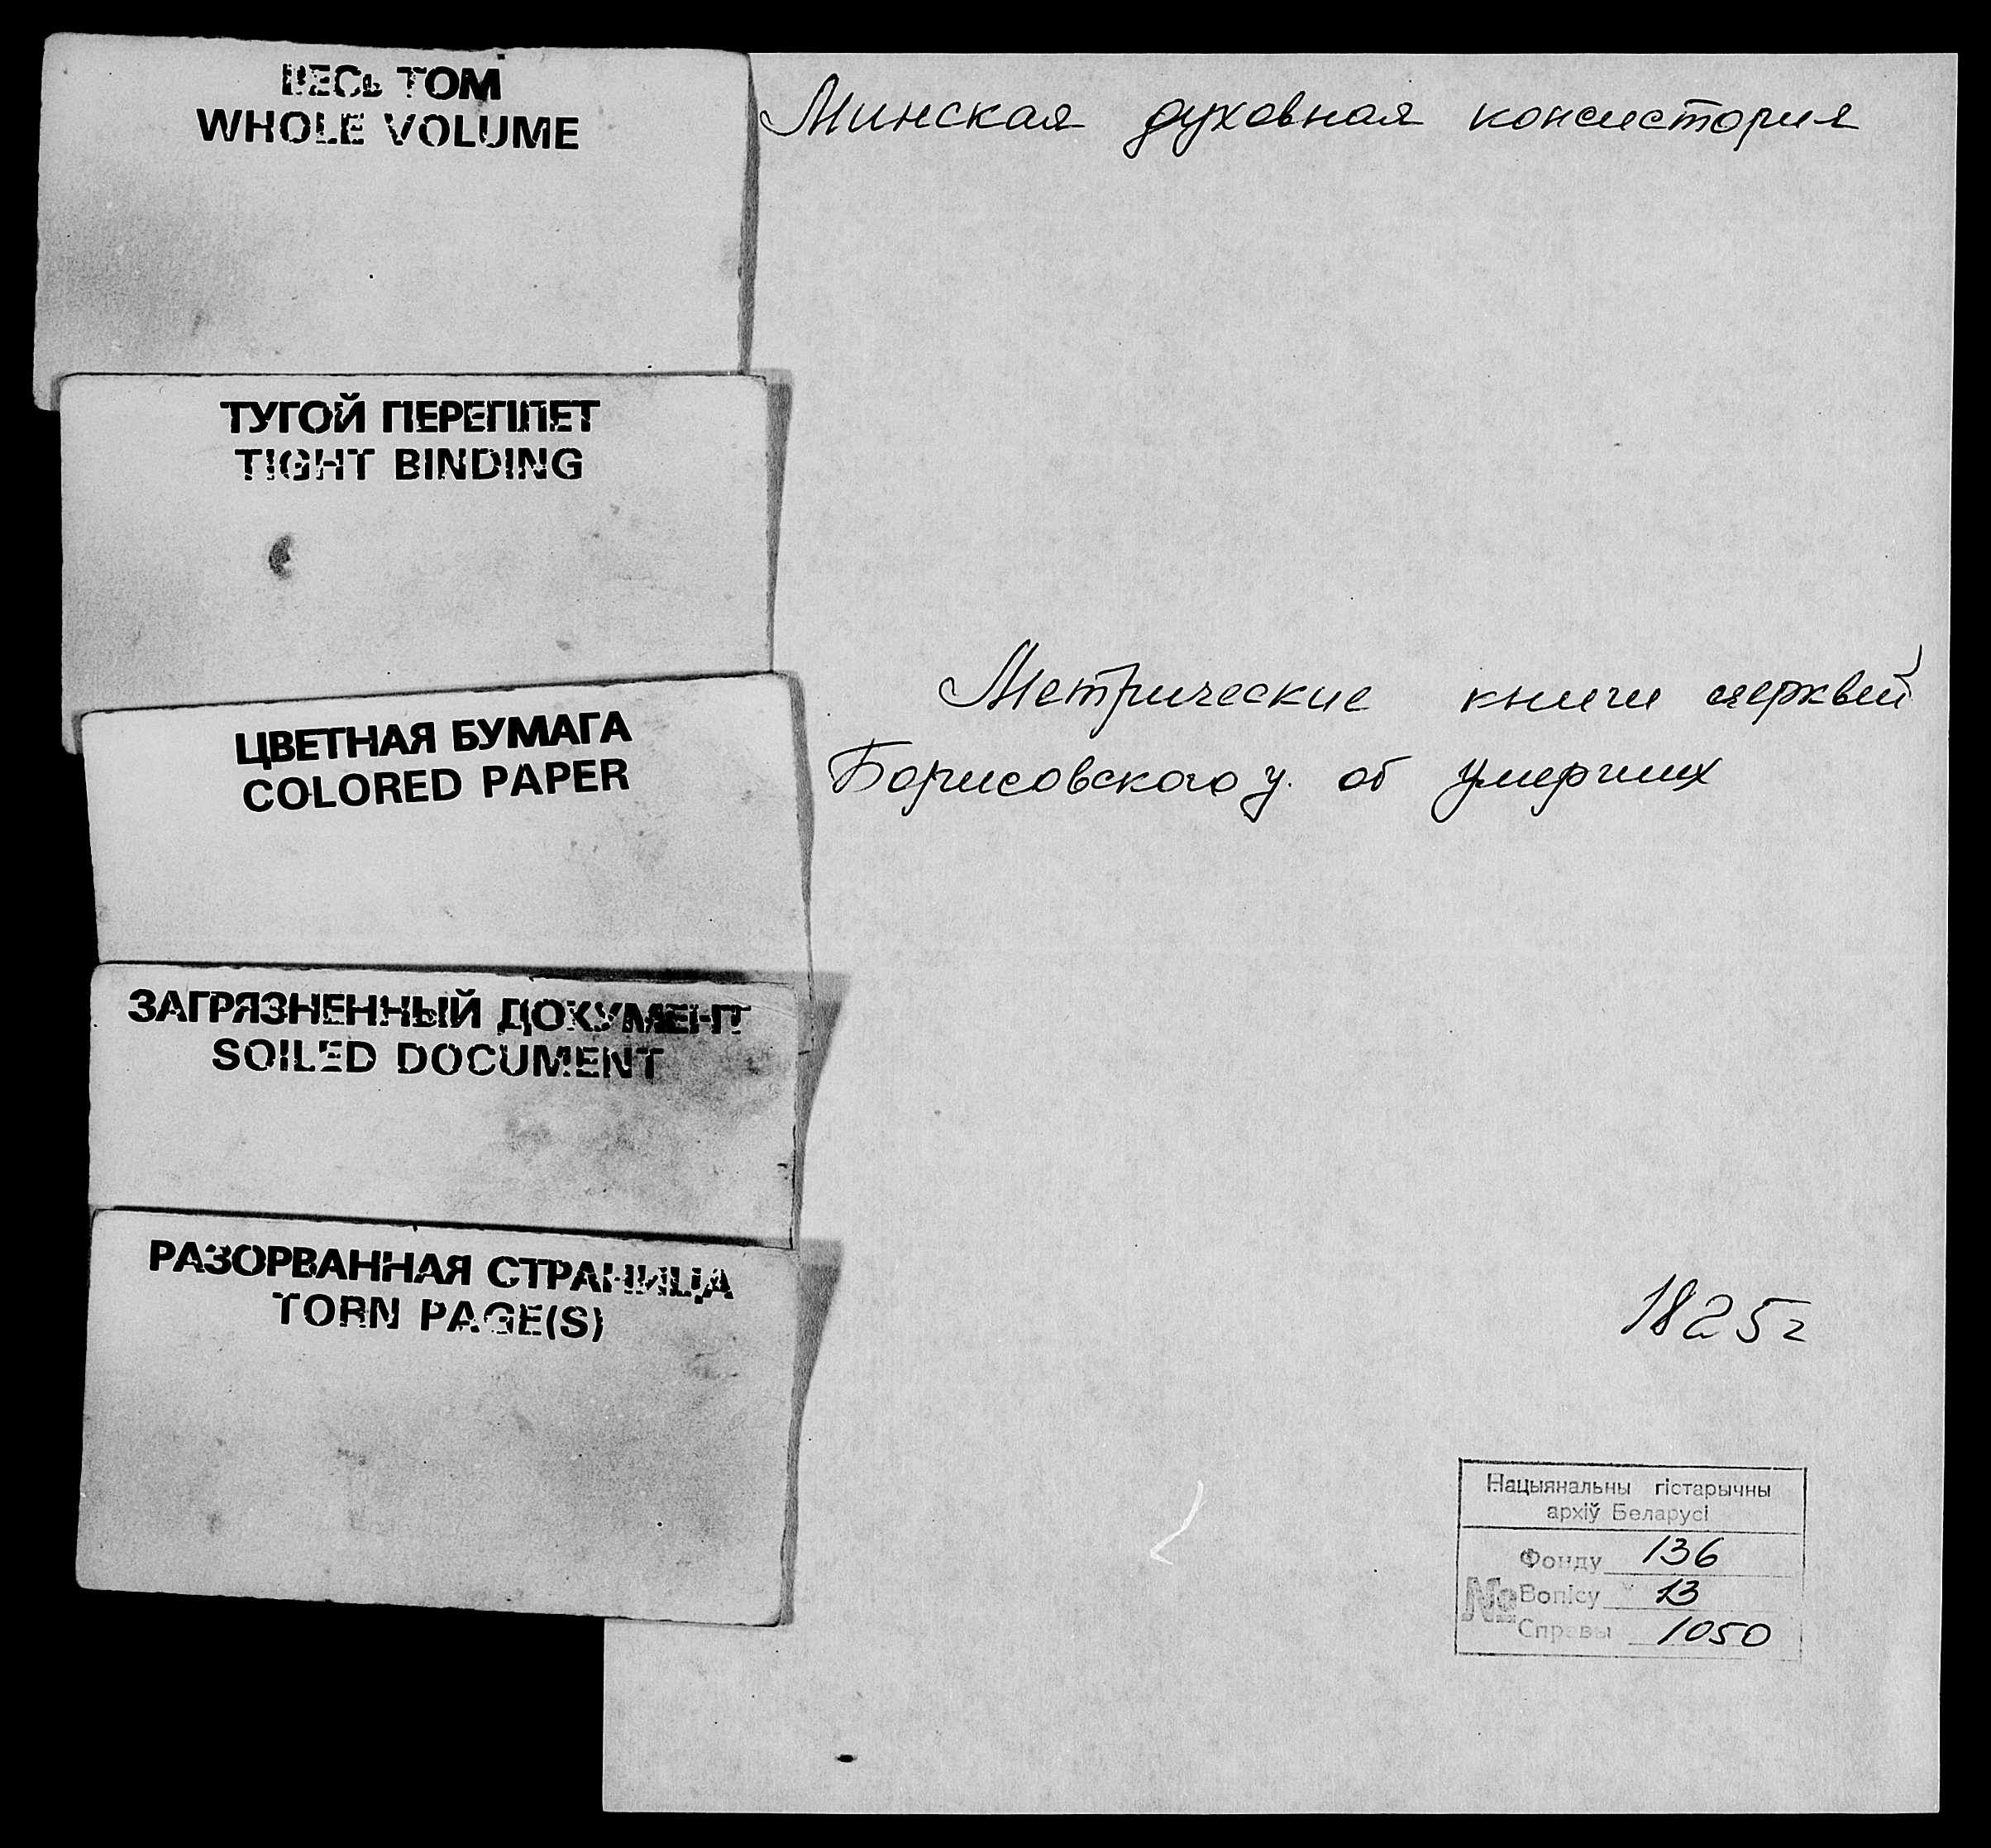 ВЕСЬ ТОМ
WHOLE VOLUME
ТУГОЙ ПЕРЕПЛЕТ
TIGHT BINDING
ЦВЕТНАЯ БУМАГА
COLORED PAPER
ЗАГРЯЗНЕННЫЙ ДОКУМЕНТ
SOILED DOCUMENT
РАЗОРВАННАЯ СТРАНИЦА
TORN PAGE(S)
Минская духовная консистория
Метрические книги церквей
Борисовского у. об умерших
1825 г
Нацыянальны гістарычны
архіў Беларусі
Фонду 136
№ Вопісу 13
Справы 1050